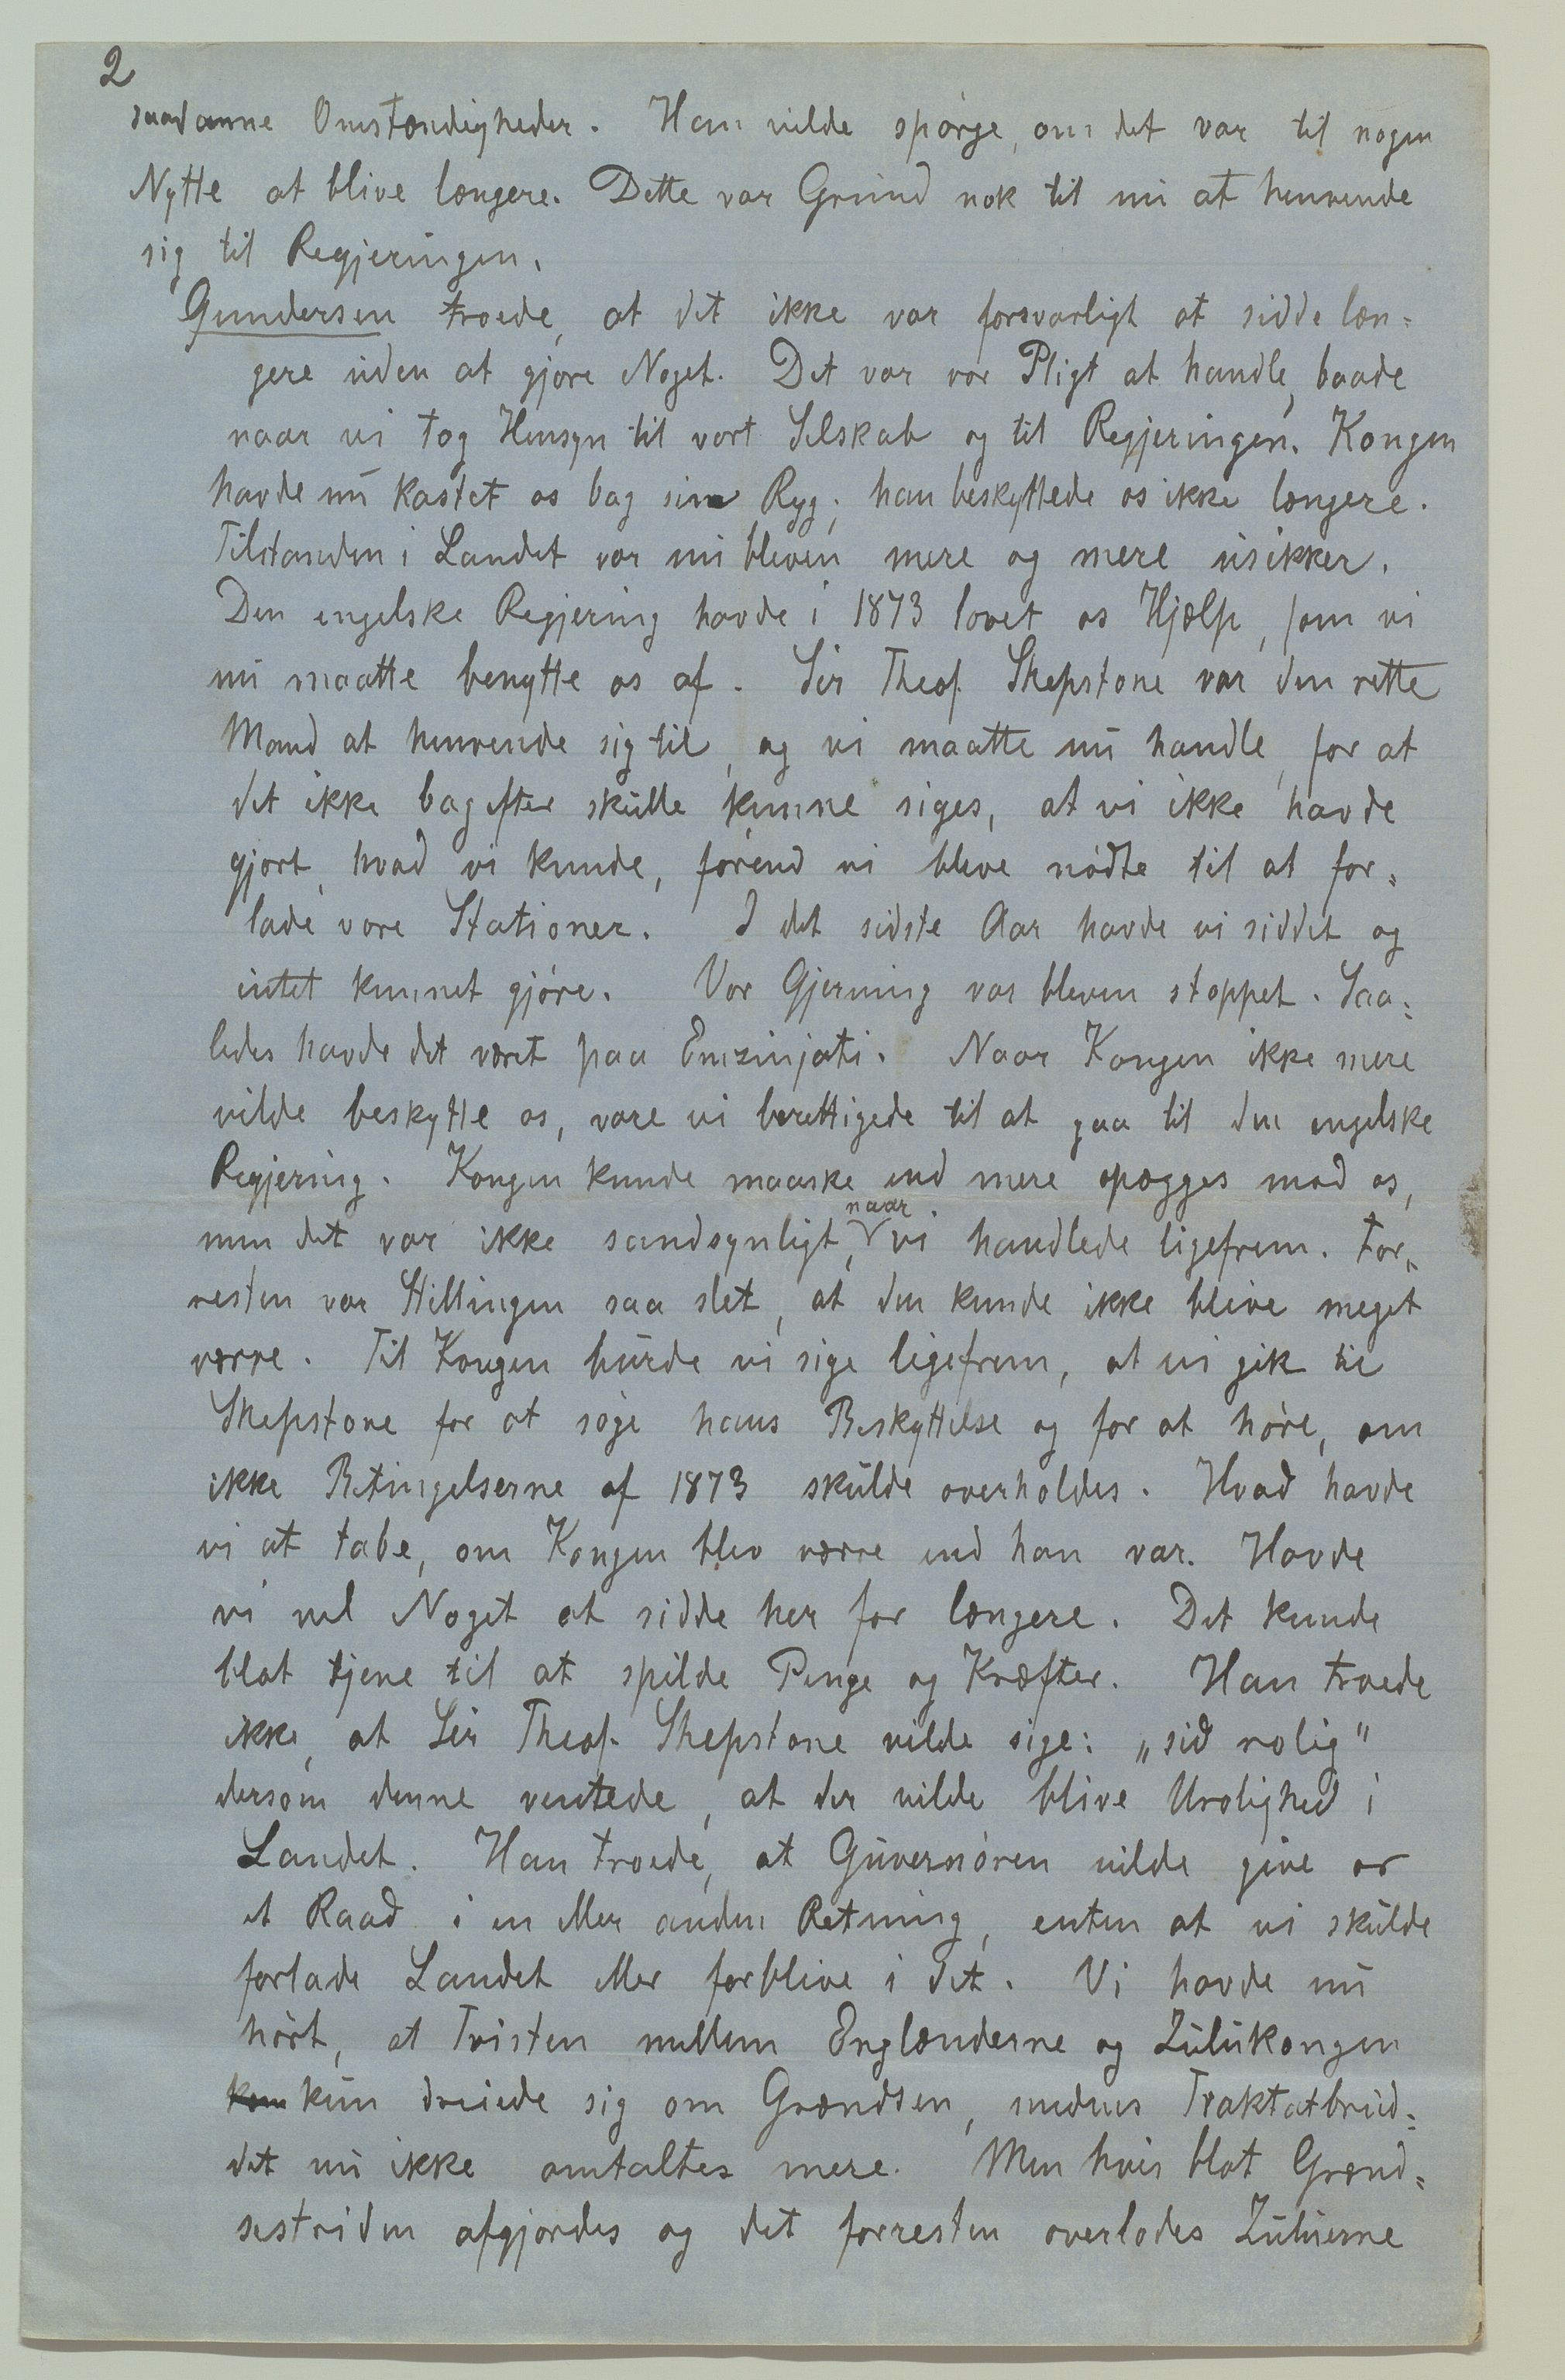 2
saadanne Omstændigheder. Han vilde spørge, om det var til nogen
Nytte at blive længere. Dette var Grund nok til nu at henvende
sig til Regjeringen.
Gundersen troede, at det ikke var forsvarligt at sidde læn-
gere uden at gjøre Noget. Det var vor Pligt at handle, baade
naar vi tog Hensyn til vort Selskab og til Regjeringen. Kongen
havde nu kastet os bag sin Ryg; han beskyttede os ikke længere.
Tilstanden i Landet var nu bleven mere og mere usikker.
Den engelske Regjering havde i 1873 lovet os Hjælp, som vi
nu maatte benytte os af. Sir Theof. Shepstone var den rette
Mand at henvende sig til, og vi maatte nu handle, for at
det ikke bagefter skulle kunne siges, at vi ikke havde
gjort, hvad vi kunde, førend vi bleve nødte til at for-
lade vore Stationer. I det sidste Aar havde vi siddet og
intet kunnet gjøre. Vor Gjerning var bleven stoppet. Saa-
ledes havde det været paa Emzinjati. Naar Kongen ikke mere
vilde beskytte os, vare vi berettigede til at gaa til den engelske
Regjering. Kongen kunde maaske end mere opægges mod os,
men det var ikke sandsynligt, naar vi handlede ligefrem. For-
resten var Stillingen saa slet, at den kunde ikke blive meget
værre. Til Kongen burde vi sige ligefrem, at vi gik til
Shepstone for at søge hans Beskyttelse og for at høre, om
ikke Betingelserne af 1873 skulde overholdes. Hvad havde
vi at tabe, om Kongen blev værre end han var. Havde
vi vel Noget at sidde her for længere. Det kunde
blot tjene til at spilde Penge og Kræfter. Han troede
ikke, at Sir Theof. Shepstone vilde sige: „sid rolig"
dersom denne ventede, at der vilde blive Urolighed i
Landet. Han troede, at Guvernøren vilde give os
et Raad i en eller anden Retning, enten at vi skulde
forlade Landet eller forblive i det. Vi havde nu
hørt, at Tvisten mellem Englænderne og Zulukongen
kom kun dreiede sig om Grændsen, medens Traktatbrud-
det nu ikke omtaltes mere. Men hvis blot Grænd-
sestriden afgjordes og det forresten overlodes Zuluerne